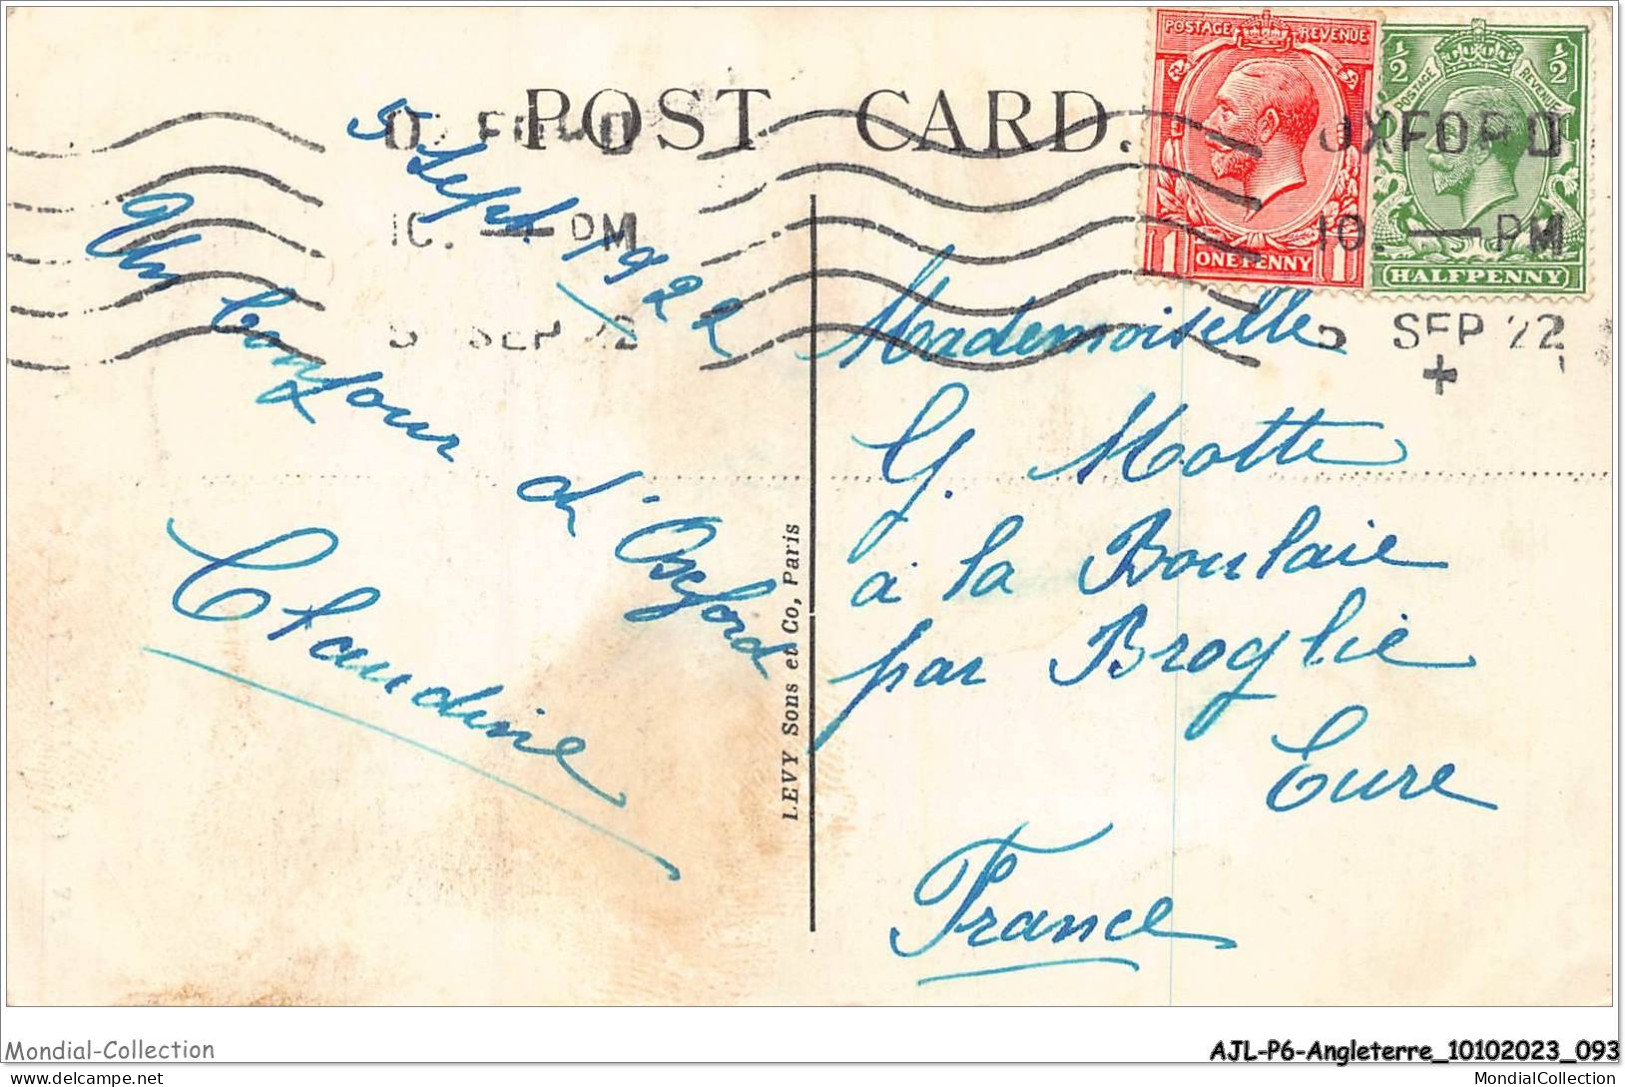 POST CARD.
POSTAGE REVENUE
1 ONE PENNY 1
½ ½
POSTAGE REVENUE
HALFPENNY
OXFORD
10. — PM
5 SEP 22
+
OXFORD
10. — PM
5 SEP 22
5 Sept. 1922
bonjour d'Oxford
Claudine
LEVY Sons et Co, Paris
Mademoiselle
G. Motte
à la Boulaie
par Broglie
Eure
France
Mondial-Collection
AJL-P6-Angleterre_10102023_093
delcampe.net
MondialCollection